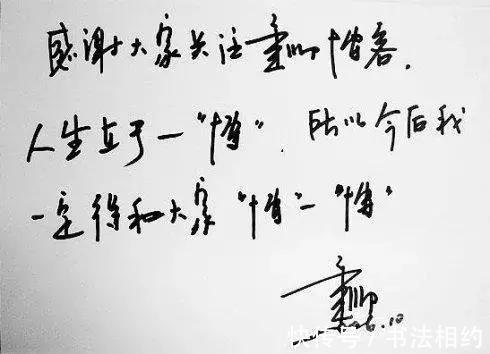 感谢大家关注董卿博客.
人生于一“博”. 所以今后我
一定得和大家“博”一“博”
董卿
06.10
快传号/书法相约